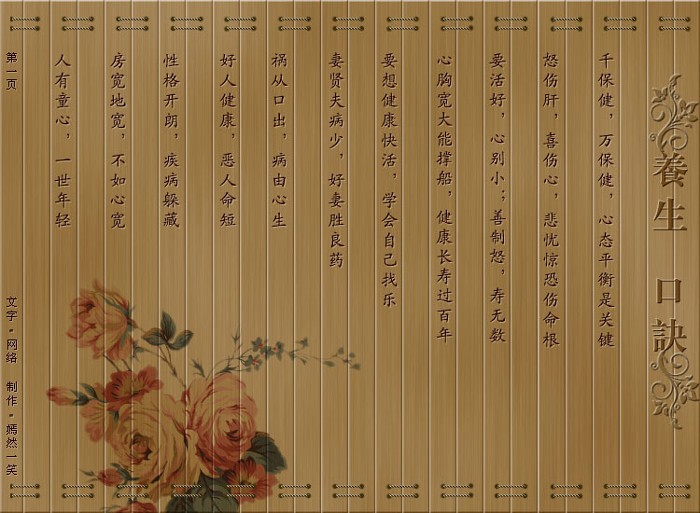 養生 口訣
千保健，万保健，心态平衡是关键
怒伤肝，喜伤心，悲忧惊恐伤命根
要活好，心别小；善制怒，寿无数
心胸宽大能撑船，健康长寿过百年
要想健康快活，学会自己找乐
妻贤夫病少，好妻胜良药
祸从口出，病由心生
好人健康，恶人命短
性格开朗，疾病躲藏
房宽地宽，不如心宽
人有童心，一世年轻
第一页
文字。网络 制作。嫣然一笑